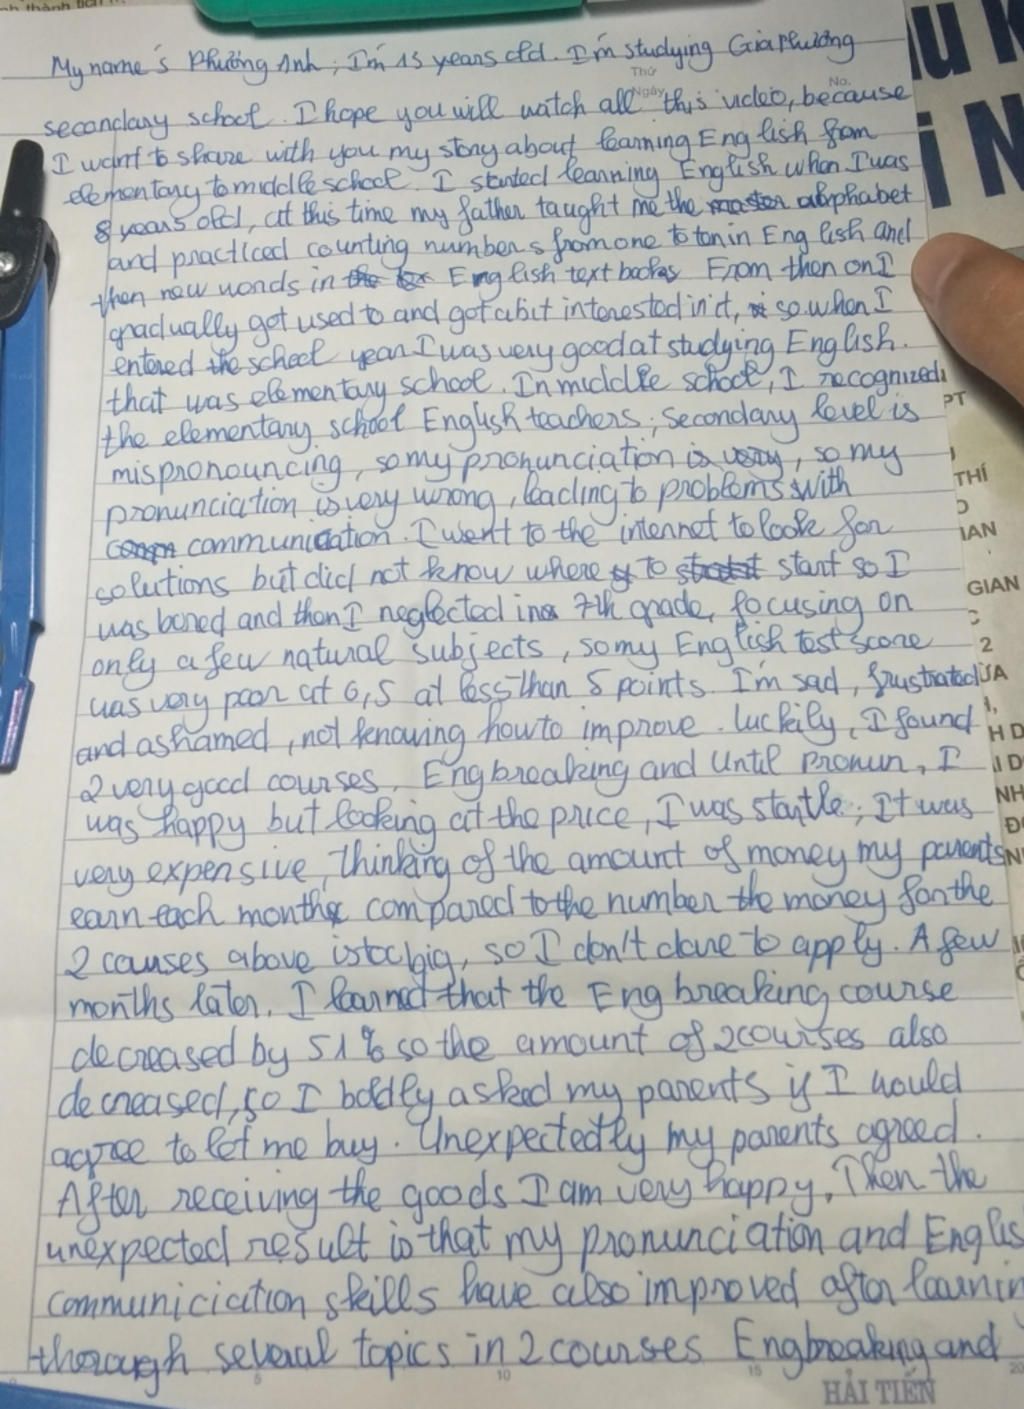 My name's Phương Anh, I'm 13 years old. I'm studying Gia Phương
Thứ
Ngày
No.
secondary school. I hope you will watch all this video, because
I want to share with you my story about learning English from
elementary to middle school. I started learning English when I was
8 years old, at this time my father taught me the master alphabet
and practiced counting numbers from one to ten in English and
then new words in the English text books From then on I
gradually got used to and got a bit interested in it, so when I
entered the school year I was very good at studying English.
that was elementary school. In middle school, I recognized
the elementary school English teachers, Secondary level is
mispronouncing, so my pronunciation is very, so my
pronunciation is very wrong, leading to problems with
comm communication. I went to the internet to look for
solutions but did not know where to start so I
was bored and then I neglected in 7th grade, focusing on
only a few natural subjects, so my English test score
was very poor at 6,5 at less than 5 points. I'm sad, frustrated
and ashamed, not knowing how to improve. luckily, I found
2 very good courses, Eng breaking and Until Pronun, I
was happy but looking at the price, I was startle, It was
very expensive, thinking of the amount of money my parents
earn each month compared to the number the money for the
2 courses above is too big, so I don't dare to apply. A few
months later, I learned that the Eng breaking course
decreased by 51% so the amount of 2 courses also
decreased, so I boldly asked my parents if I would
agree to let me buy. Unexpectedly my parents agreed.
After receiving the goods I am very happy, Then the
unexpected result is that my pronunciation and Englis
communiciation skills have also improved after learnin
thorough several topics in 2 courses Engbreaking and
5 10 15 20
HẢI TIẾN
PT
THÍ
IAN
GIAN
C
2
H D
NH